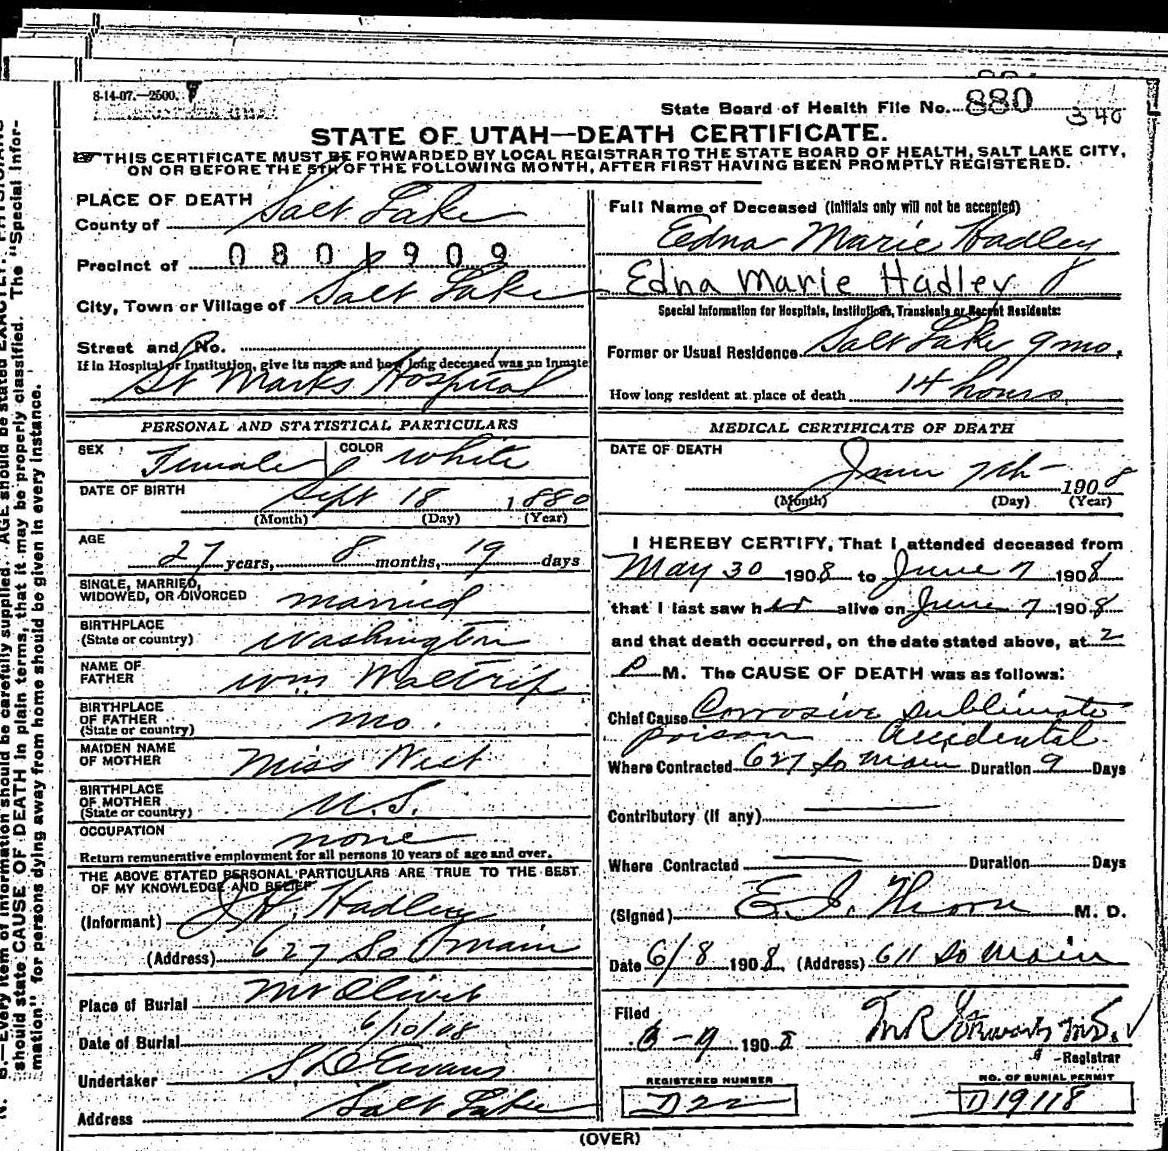 8-14-07.—2500.
State Board of Health File No. 880
340
STATE OF UTAH—DEATH CERTIFICATE.
THIS CERTIFICATE MUST BE FORWARDED BY LOCAL REGISTRAR TO THE STATE BOARD OF HEALTH, SALT LAKE CITY,
ON OR BEFORE THE 5TH OF THE FOLLOWING MONTH, AFTER FIRST HAVING BEEN PROMPTLY REGISTERED.
PLACE OF DEATH
County of Salt Lake
Precinct of 0801909
City, Town or Village of Salt Lake
Street and No.
If in Hospital or Institution, give its name and how long deceased was an Inmate
St Marks Hospital
Full Name of Deceased (Initials only will not be accepted)
Edna Marie Hadley
Edna Marie Hadley
Special Information for Hospitals, Institutions, Transients or Recent Residents:
Former or Usual Residence Salt Lake 9 mo.
How long resident at place of death 14 hours
PERSONAL AND STATISTICAL PARTICULARS
SEX Female COLOR White
DATE OF BIRTH
Sept 18 1880
(Month) (Day) (Year)
AGE
27 years, 8 months, 19 days
SINGLE, MARRIED,
WIDOWED, OR DIVORCED married
BIRTHPLACE
(State or country) Washington
NAME OF
FATHER Wm Waltrip
BIRTHPLACE
OF FATHER
(State or country) Mo.
MAIDEN NAME
OF MOTHER Miss West
BIRTHPLACE
OF MOTHER
(State or country) U.S.
OCCUPATION
none
Return remunerative employment for all persons 10 years of age and over.
THE ABOVE STATED PERSONAL PARTICULARS ARE TRUE TO THE BEST
OF MY KNOWLEDGE AND BELIEF
(Informant) Hadley
(Address) 627 So Main
Place of Burial Mt Olivet
Date of Burial 6/10/08
Undertaker S D Evans
Address Salt Lake
MEDICAL CERTIFICATE OF DEATH
DATE OF DEATH
June 7th 1908
(Month) (Day) (Year)
I HEREBY CERTIFY, That I attended deceased from
May 30 1908 to June 7 1908
that I last saw her alive on June 7 1908
and that death occurred, on the date stated above, at 2
P M. The CAUSE OF DEATH was as follows:
Chief Cause Corrosive sublimate
poison accidental
Where Contracted 627 So Main Duration 9 Days
Contributory (if any)
Where Contracted Duration Days
(Signed) M. D.
Date 6/8 1908 (Address) 611 So Main
Filed
6-9 1908
Registrar
REGISTERED NUMBER
D22
NO. OF BURIAL PERMIT
D19118
(OVER)
N. B.—Every item of information should be carefully supplied. AGE should be stated EXACTLY. PHYSICIANS
should state CAUSE OF DEATH in plain terms, that it may be properly classified. The "Special Infor-
mation" for persons dying away from home should be given in every instance.